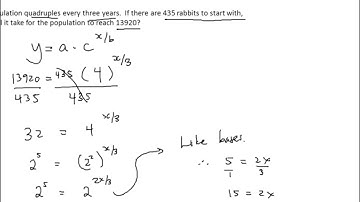 ulation quadruples every three years. If there are 435 rabbits to start with,
l it take for the population to reach 13920?
y = a · c^(x/b)
13920/435 = 435(4)^(x/3)/435
32 = 4^(x/3)
2^5 = (2^2)^(x/3)
2^5 = 2^(2x/3)
Like bases.
∴ 5/1 = 2x/3
15 = 2x